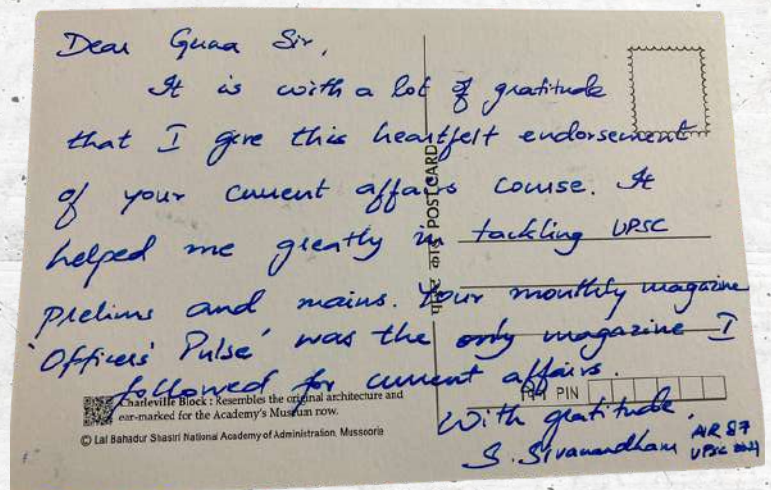 Dear Guna Sir,
It is with a lot of gratitude
that I give this heartfelt endorsement
of your current affairs course. It
helped me greatly in tackling UPSC
Prelims and mains. Your monthly magazine
'Officers' Pulse' was the only magazine I
followed for current affairs.
With gratitude,
S. Sivanandham
AIR 87
UPSC 2021
पोस्ट कार्ड POST CARD
पिन PIN
Charleville Block : Resembles the original architecture and
ear-marked for the Academy's Museum now.
© Lal Bahadur Shastri National Academy of Administration, Mussoorie